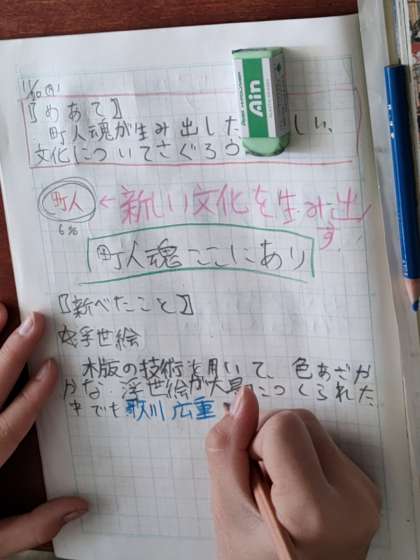 11/30(月)
【めあて】
町人魂が生み出した しい、
文化についてさぐろう
町人 ← 新しい文化を生み出す
6%
町人魂ここにあり
【新べたこと】
☆浮世絵
木版の技術を用いて、色あざや
かな浮世絵が大量につくられた
中でも歌川広重
Ain